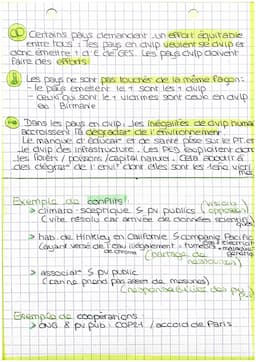 Certains pays demandent un effort équitable
entre tous : les pays en dvlp veulent se dvlp et
donc émettre + d'É de GES. Les pays dvlp doivent
faire des efforts
Les pays ne sont pas touchés de la même façon :
- le pays émettent le + sont les + dvlp
- ceux qui sont le + victimes sont ceux en dvlp
ex : Birmanie
Dans les pays en dvlp, les inégalités de dvlp humain
accroissent la dégradat° de l'environnement
Le manque d'éducat° et de santé pèse sur le PT. et
le dvlp des infrastructure. Les PED exploitent donc
les forêts / poissons / capital naturel. Cela aboutit à
des dégrat° de l'envi° dont elles sont les 1ères victi
Exemple de conflits
> climato-sceptique S pv publics
(vite résolu car arrivée de données scientif
> hab. de Hinkley en Californie S compagnie Pacific
(ayant versé de l'eau illégalement = tumeurs
de chrome
(partage de
ressources)
> associat° S pv public
(car ne prend pas assez de mesures)
(responsabilités des pv
Exemple de coopérations :
> ONG & pv pub : COP21 / accord de Paris